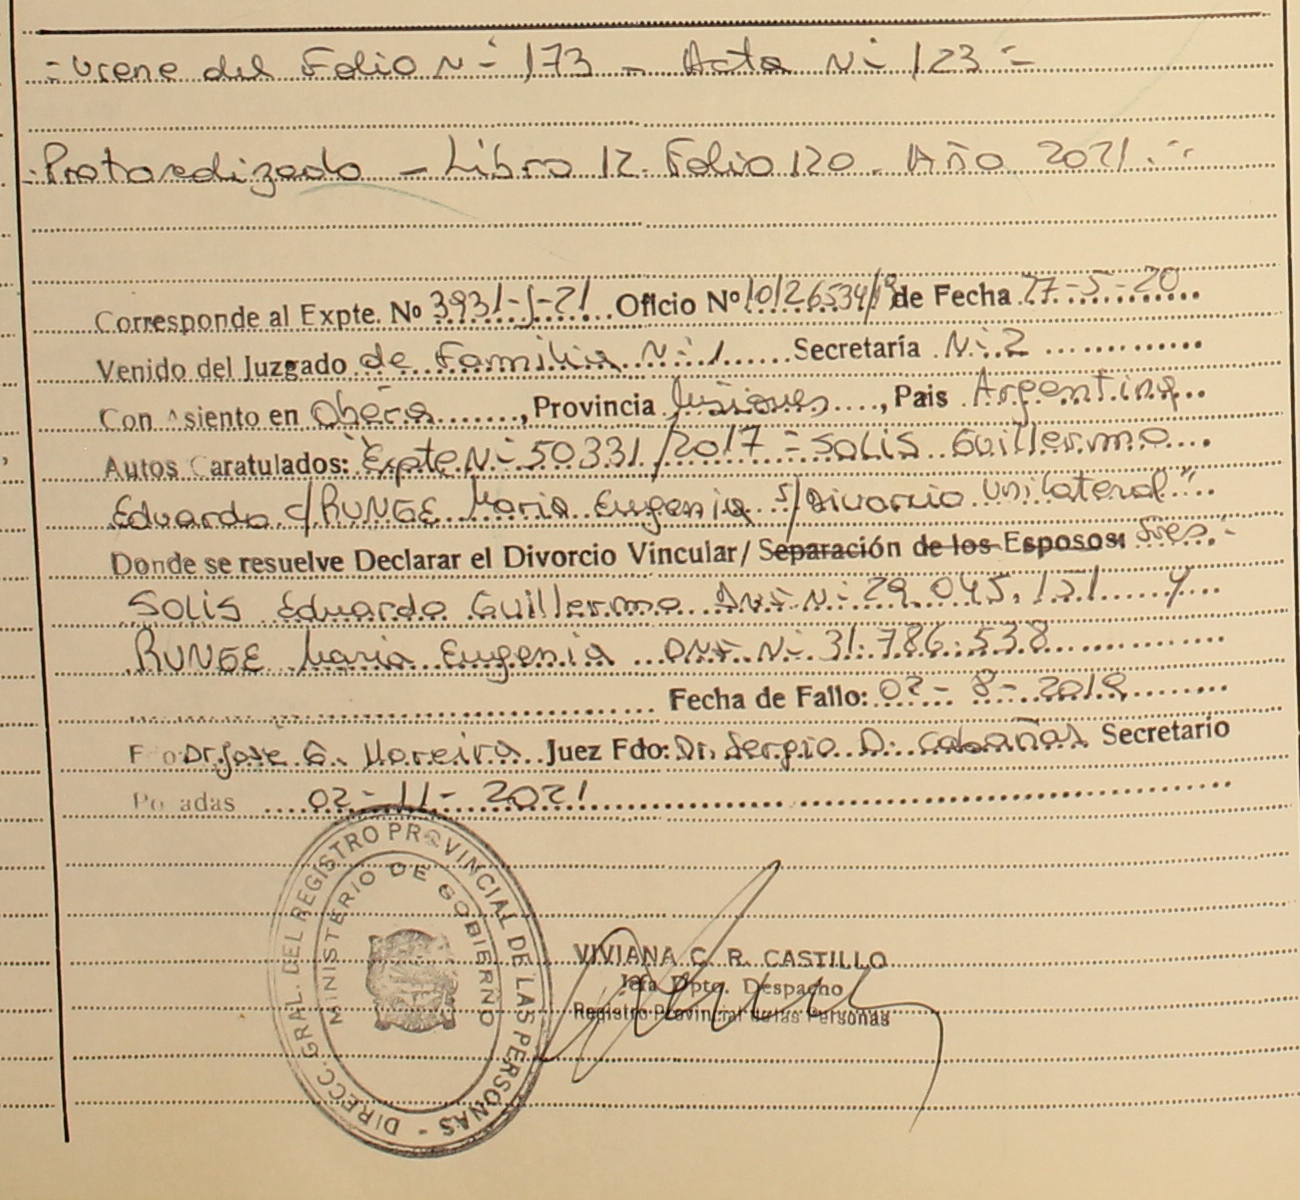 - Viene del Folio Nº 173 - Acta Nº 123 -
Protocolizado - Libro 12. Folio 120 - Año 2021.-
Corresponde al Expte. Nº 3931-J-21 Oficio Nº 10126534/19 de Fecha 27-5-20
Venido del Juzgado de Familia Nº 1 Secretaría Nº 2
Con Asiento en Oberá, Provincia Misiones, Pais Argentina
Autos Caratulados: "Expte Nº 50331/2017 - SOLIS Guillermo
Eduardo c/ RUNGE Maria Eugenia s/ Divorcio Unilateral"
Donde se resuelve Declarar el Divorcio Vincular/ Separación de los Esposos: Sres.-
SOLIS Eduardo Guillermo DNI Nº 29.045.151 y
RUNGE Maria Eugenia DNI Nº 31.786.538
Fecha de Fallo: 02-8-2019
Fdo Dr. Jose G. Moreira Juez Fdo: Dr. Sergio D. Cabañas Secretario
Posadas 02-11-2021
DIRECC. GRAL. DEL REGISTRO PROVINCIAL DE LAS PERSONAS -
MINISTERIO DE GOBIERNO
VIVIANA C. R. CASTILLO
Jefa Dpto. Despacho
Registro Provincial de las Personas